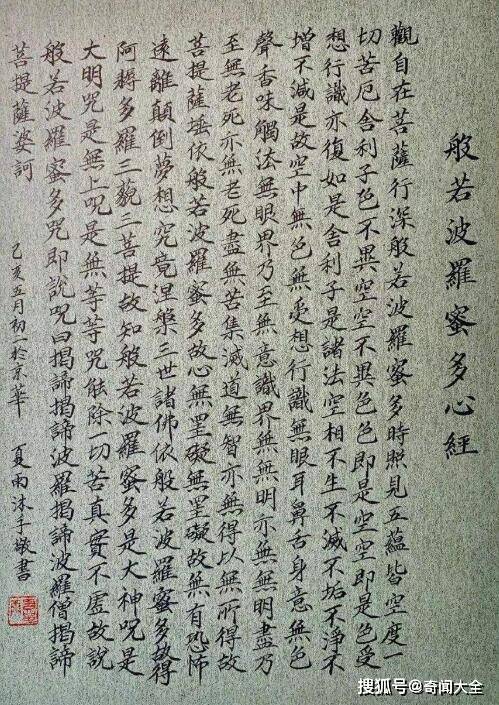 般若波羅蜜多心經
觀自在菩薩行深般若波羅蜜多時照見五蘊皆空度一
切苦厄舍利子色不異空空不異色色即是空空即是色受
想行識亦復如是舍利子是諸法空相不生不滅不垢不淨不
增不減是故空中無色無受想行識無眼耳鼻舌身意無色
聲香味觸法無眼界乃至無意識界無無明亦無無明盡乃
至無老死亦無老死盡無苦集滅道無智亦無得以無所得故
菩提薩埵依般若波羅蜜多故心無罣礙無罣礙故無有恐怖
遠離顛倒夢想究竟涅槃三世諸佛依般若波羅蜜多故得
阿耨多羅三藐三菩提故知般若波羅蜜多是大神咒是
大明咒是無上咒是無等等咒能除一切苦真實不虛故說
般若波羅蜜多咒即說咒曰揭諦揭諦波羅揭諦波羅僧揭諦
菩提薩婆訶
己亥五月初一於京華 夏雨沐手敬書
搜狐号@奇闻大全